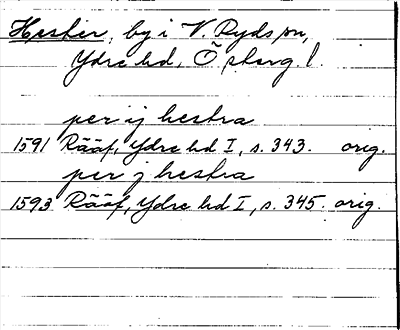 Hester, by i V. Ryds sn,
Ydre hd, Österg. l.
per ij hestra
1591 Rääf, Ydre hd I, s. 343. orig.
per j hestra
1593 Rääf, Ydre hd I, s. 345. orig.